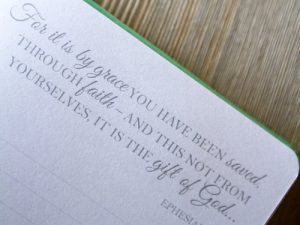 For it is by grace YOU HAVE BEEN saved,
THROUGH faith – AND THIS NOT FROM
YOURSELVES, IT IS THE gift of God...